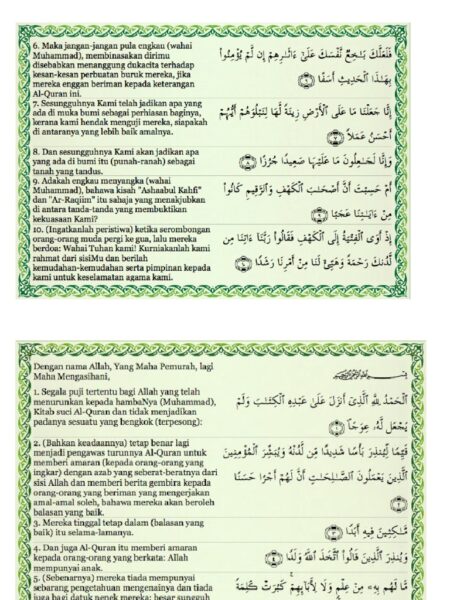 6. Maka jangan-jangan pula engkau (wahai
Muhammad), membinasakan dirimu
disebabkan menanggung dukacita terhadap
kesan-kesan perbuatan buruk mereka, jika
mereka enggan beriman kepada keterangan
Al-Quran ini.
فَلَعَلَّكَ بَـٰخِعٌ نَّفْسَكَ عَلَىٰٓ ءَاثَـٰرِهِمْ إِن لَّمْ يُؤْمِنُوا۟
بِهَـٰذَا ٱلْحَدِيثِ أَسَفًا ٦
7. Sesungguhnya Kami telah jadikan apa yang
ada di muka bumi sebagai perhiasan baginya,
kerana kami hendak menguji mereka, siapakah
di antaranya yang lebih baik amalnya.
إِنَّا جَعَلْنَا مَا عَلَى ٱلْأَرْضِ زِينَةً لَّهَا لِنَبْلُوَهُمْ أَيُّهُمْ
أَحْسَنُ عَمَلًا ٧
8. Dan sesungguhnya Kami akan jadikan apa
yang ada di bumi itu (punah-ranah) sebagai
tanah yang tandus.
وَإِنَّا لَجَـٰعِلُونَ مَا عَلَيْهَا صَعِيدًا جُرُزًا ٨
9. Adakah engkau menyangka (wahai
Muhammad), bahawa kisah "Ashaabul Kahfi"
dan "Ar-Raqiim" itu sahaja yang menakjubkan
di antara tanda-tanda yang membuktikan
kekuasaan Kami?
أَمْ حَسِبْتَ أَنَّ أَصْحَـٰبَ ٱلْكَهْفِ وَٱلرَّقِيمِ كَانُوا۟
مِنْ ءَايَـٰتِنَا عَجَبًا ٩
10. (Ingatkanlah peristiwa) ketika serombongan
orang-orang muda pergi ke gua, lalu mereka
berdoa: Wahai Tuhan kami! Kurniakanlah kami
rahmat dari sisiMu dan berilah
kemudahan-kemudahan serta pimpinan kepada
kami untuk keselamatan agama kami.
إِذْ أَوَى ٱلْفِتْيَةُ إِلَى ٱلْكَهْفِ فَقَالُوا۟ رَبَّنَآ ءَاتِنَا مِن
لَّدُنكَ رَحْمَةً وَهَيِّئْ لَنَا مِنْ أَمْرِنَا رَشَدًا ١٠
Dengan nama Allah, Yang Maha Pemurah, lagi
Maha Mengasihani,
1. Segala puji tertentu bagi Allah yang telah
menurunkan kepada hambaNya (Muhammad),
Kitab suci Al-Quran dan tidak menjadikan
padanya sesuatu yang bengkok (terpesong):
ٱلْحَمْدُ لِلَّهِ ٱلَّذِىٓ أَنزَلَ عَلَىٰ عَبْدِهِ ٱلْكِتَـٰبَ وَلَمْ
يَجْعَل لَّهُۥ عِوَجَا ١
2. (Bahkan keadaannya) tetap benar lagi
menjadi pengawas turunnya Al-Quran untuk
memberi amaran (kepada orang-orang yang
ingkar) dengan azab yang seberat-beratnya dari
sisi Allah dan memberi berita gembira kepada
orang-orang yang beriman yang mengerjakan
amal-amal soleh, bahawa mereka akan beroleh
balasan yang baik.
قَيِّمًا لِّيُنذِرَ بَأْسًا شَدِيدًا مِّن لَّدُنْهُ وَيُبَشِّرَ ٱلْمُؤْمِنِينَ
ٱلَّذِينَ يَعْمَلُونَ ٱلصَّـٰلِحَـٰتِ أَنَّ لَهُمْ أَجْرًا حَسَنًا
٢
3. Mereka tinggal tetap dalam (balasan yang
baik) itu selama-lamanya.
مَّـٰكِثِينَ فِيهِ أَبَدًا ٣
4. Dan juga Al-Quran itu memberi amaran
kepada orang-orang yang berkata: Allah
mempunyai anak.
وَيُنذِرَ ٱلَّذِينَ قَالُوا۟ ٱتَّخَذَ ٱللَّهُ وَلَدًا ٤
5. (Sebenarnya) mereka tiada mempunyai
sebarang pengetahuan mengenainya dan tiada
juga bagi datuk nenek mereka; besar sungguh
مَّا لَهُم بِهِۦ مِنْ عِلْمٍ وَلَا لِـَٔابَآئِهِمْ كَبُرَتْ كَلِمَةً